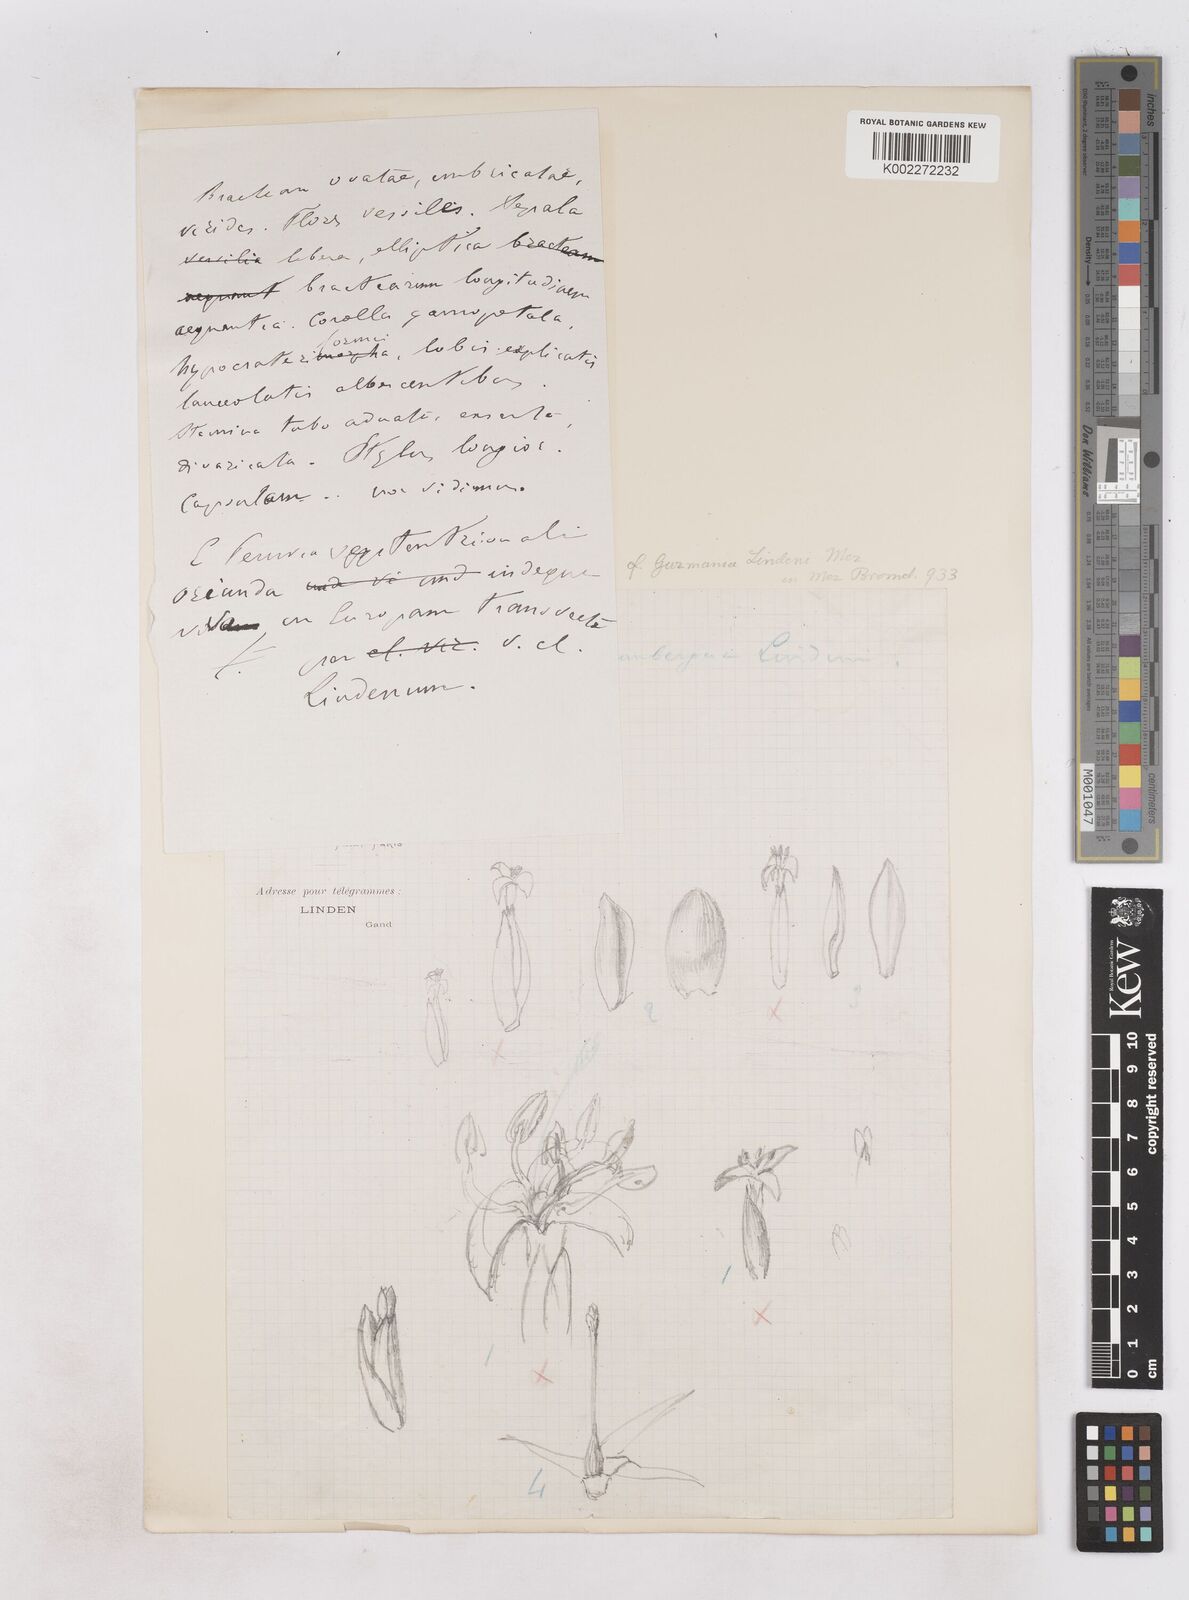 ROYAL BOTANIC GARDENS KEW
K002272232
Bracteae ovatae, imbricatae,
virides. Flores sessiles. Sepala
sessilia libera, elliptica bracteam
aequant bractearum longitudinem
aequantia. Corolla gamopetala,
hypocraterimorpha formi, lobis explicatis
lanceolatis albescentibus.
Stamina tubo adnata, exserta,
divaricata. Stylus longior.
Capsulam .. non vidimus.
E Peruvia septentrionali
oriunda indeque
in Europam transvecta
per cl. vir. v. cl.
Lindenum.
cf Guzmania Lindeni Mez
in Mez Bromel. 933
Lindeni.
Adresse pour télégrammes:
LINDEN
Gand
2
3
1
1
4
inches
Density
Don Williams
centimeters
M001047
Kew
Royal Botanic Gardens
copyright reserved
0 1 2 3 4 5 6 7 8 9 10
cm